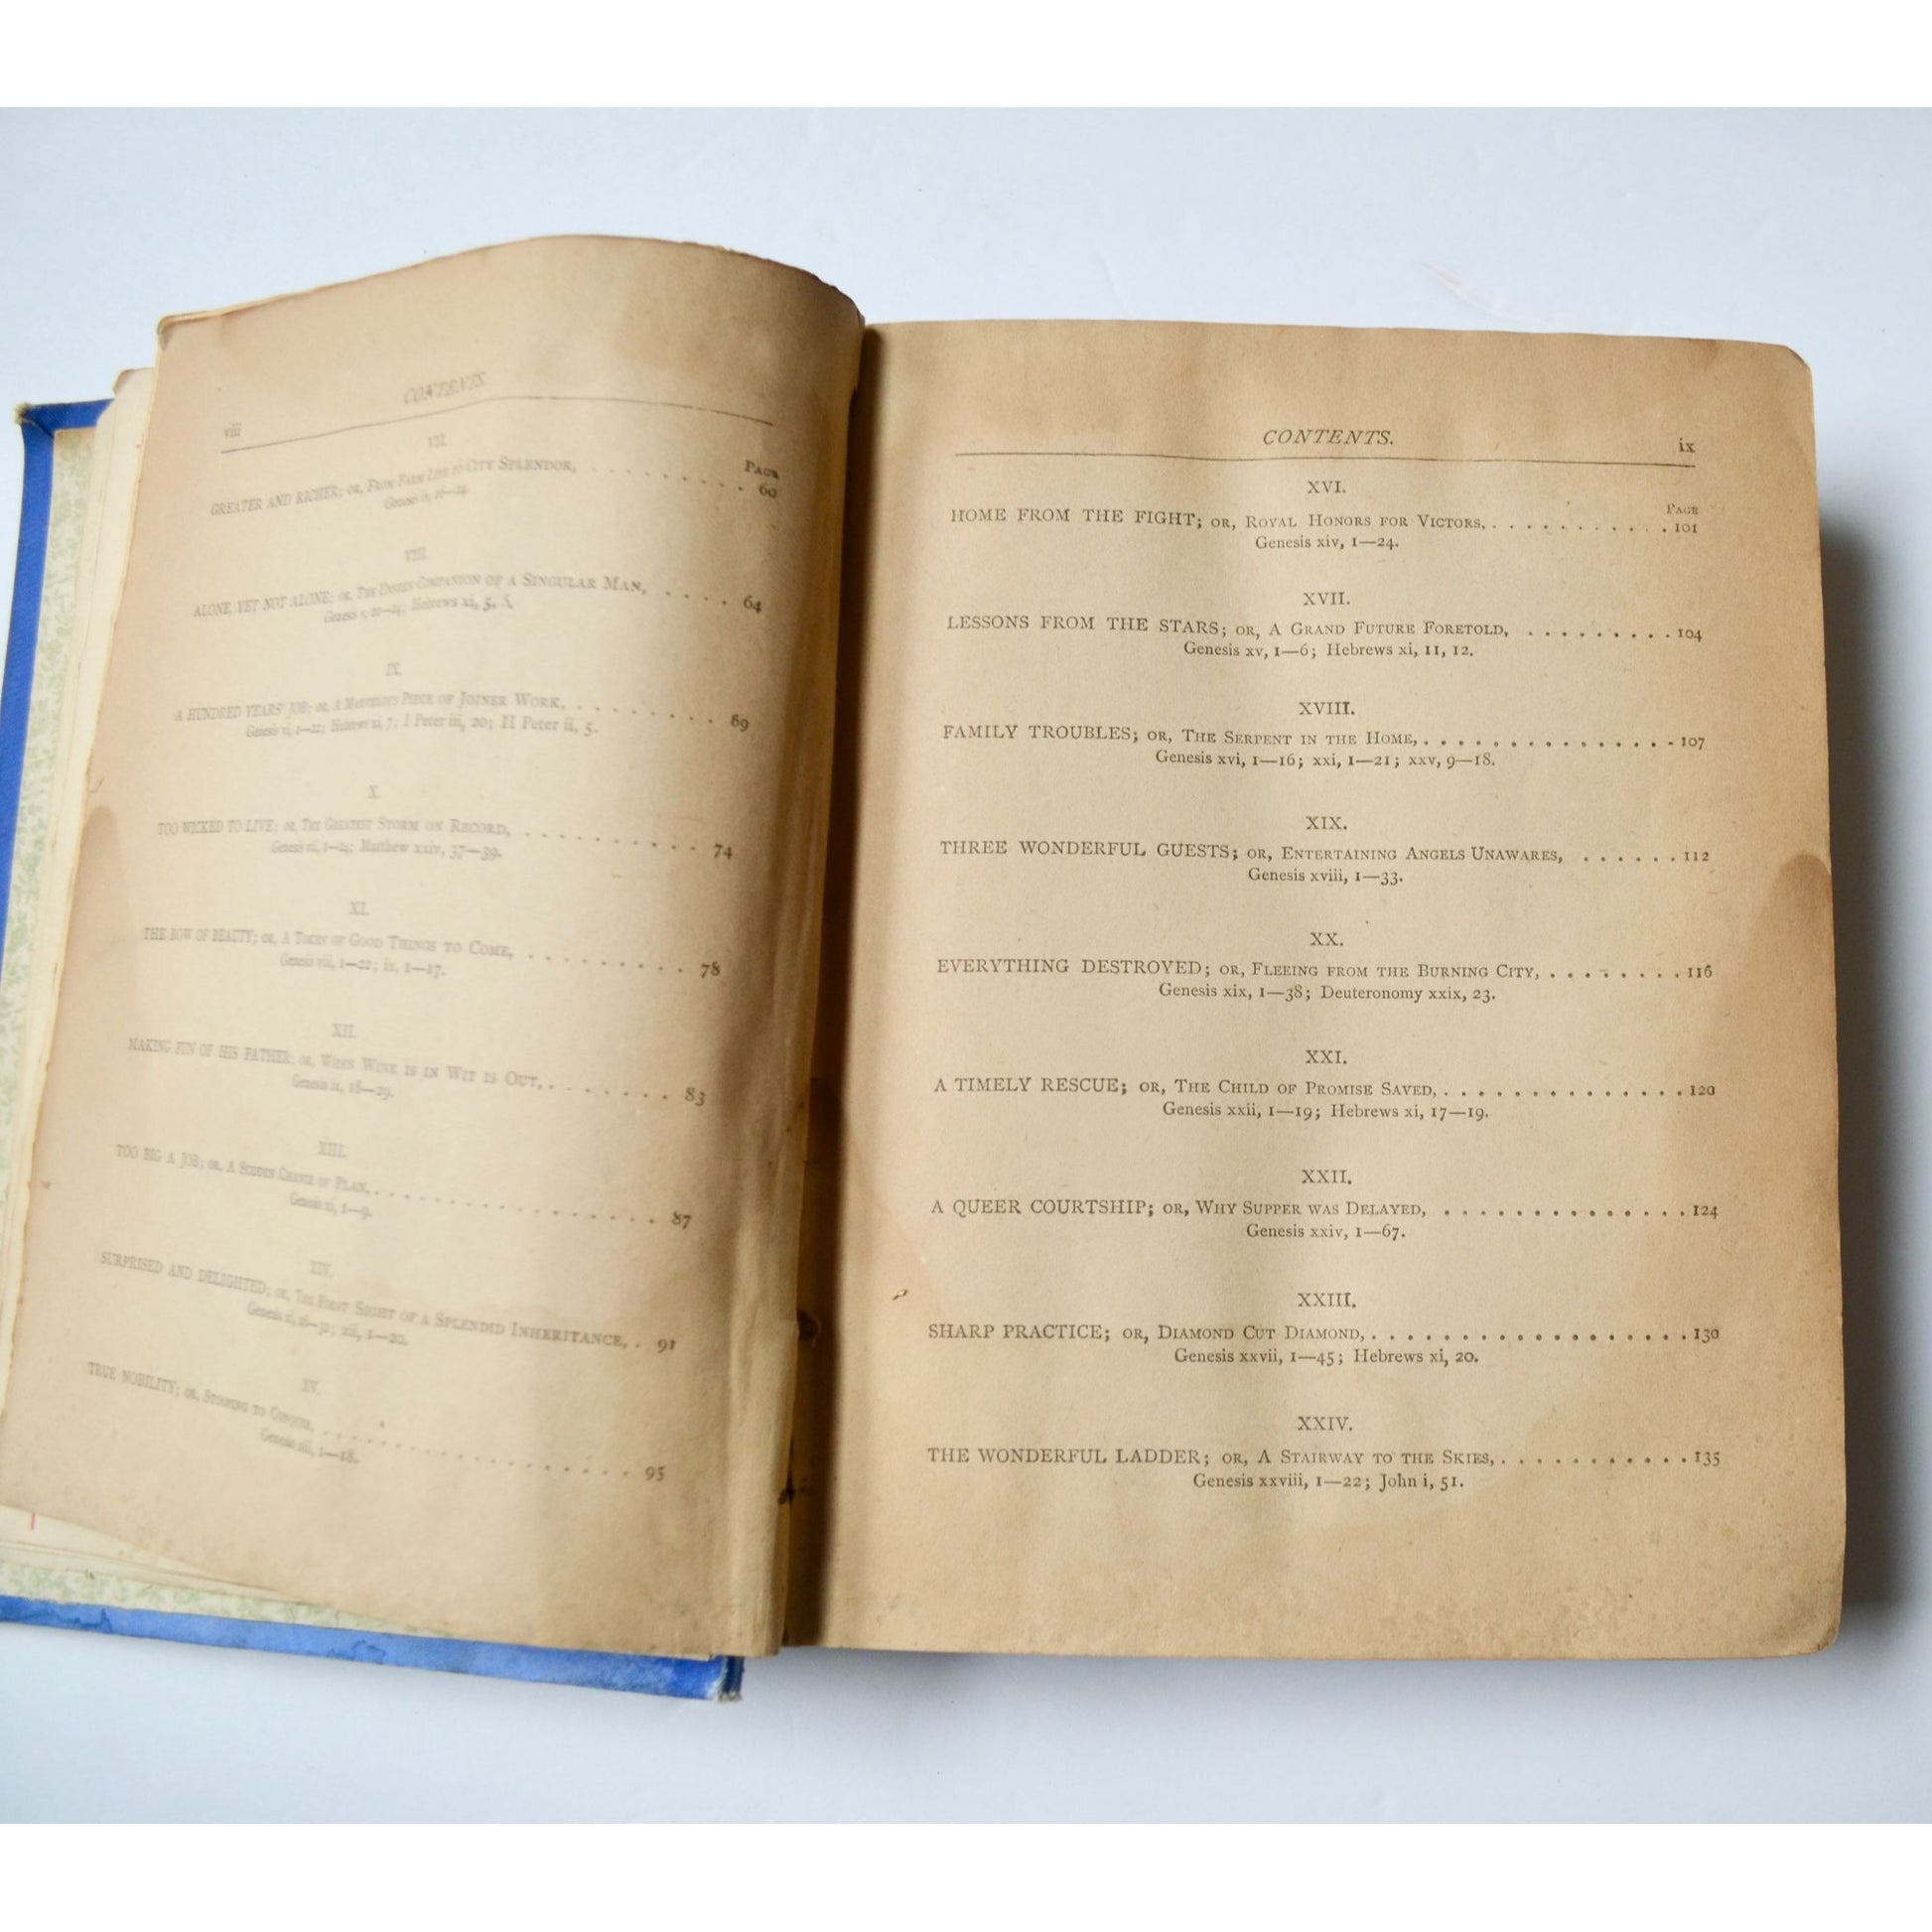 viii
CONTENTS.
VII.
Page
GREATER AND RICHER; or, From Farm Life to City Splendor, 60
Genesis iv, 16—24.
VIII.
ALONE, YET NOT ALONE; or, The Unseen Companion of a Singular Man, 64
Genesis v, 21—24; Hebrews xi, 5,
IX.
A HUNDRED YEARS' JOB; or, A Marvelous Piece of Joiner Work, 69
Genesis vi, 1—22; Hebrews xi, 7; I Peter iii, 20; II Peter ii, 5.
X.
TOO WICKED TO LIVE; or, The Greatest Storm on Record, 74
Genesis vii, 1—24; Matthew xxiv, 37—39.
XI.
THE BOW OF BEAUTY; or, A Token of Good Things to Come, 78
Genesis viii, 1—22; ix, 1—17.
XII.
MAKING FUN OF HIS FATHER; or, When Wine is in Wit is Out, 83
Genesis ix, 18—29.
XIII.
TOO BIG A JOB; or, A Sudden Change of Plan, 87
Genesis xi, 1—9.
XIV.
SURPRISED AND DELIGHTED; or, The First Sight of a Splendid Inheritance, 91
Genesis xi, xii, 1—20.
XV.
TRUE NOBILITY; or, Stooping to Conquer, 95
Genesis xiii, 1—18.
CONTENTS.
ix
XVI.
Page
HOME FROM THE FIGHT; or, Royal Honors for Victors, 101
Genesis xiv, 1—24.
XVII.
LESSONS FROM THE STARS; or, A Grand Future Foretold, 104
Genesis xv, 1—6; Hebrews xi, 11, 12.
XVIII.
FAMILY TROUBLES; or, The Serpent in the Home, 107
Genesis xvi, 1—16; xxi, 1—21; xxv, 9—18.
XIX.
THREE WONDERFUL GUESTS; or, Entertaining Angels Unawares, 112
Genesis xviii, 1—33.
XX.
EVERYTHING DESTROYED; or, Fleeing from the Burning City, 116
Genesis xix, 1—38; Deuteronomy xxix, 23.
XXI.
A TIMELY RESCUE; or, The Child of Promise Saved, 120
Genesis xxii, 1—19; Hebrews xi, 17—19.
XXII.
A QUEER COURTSHIP; or, Why Supper was Delayed, 124
Genesis xxiv, 1—67.
XXIII.
SHARP PRACTICE; or, Diamond Cut Diamond, 130
Genesis xxvii, 1—45; Hebrews xi, 20.
XXIV.
THE WONDERFUL LADDER; or, A Stairway to the Skies, 135
Genesis xxviii, 1—22; John i, 51.